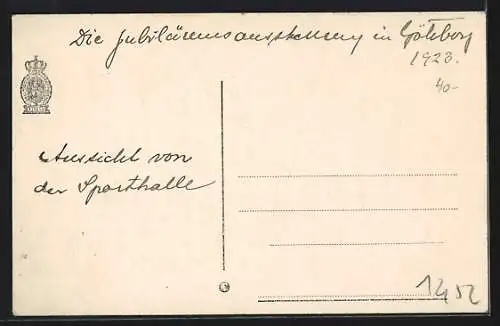 Die Jubiläumsausstellung in Göteborg
1923.
40-
Aussicht von
der Sporthalle
1252